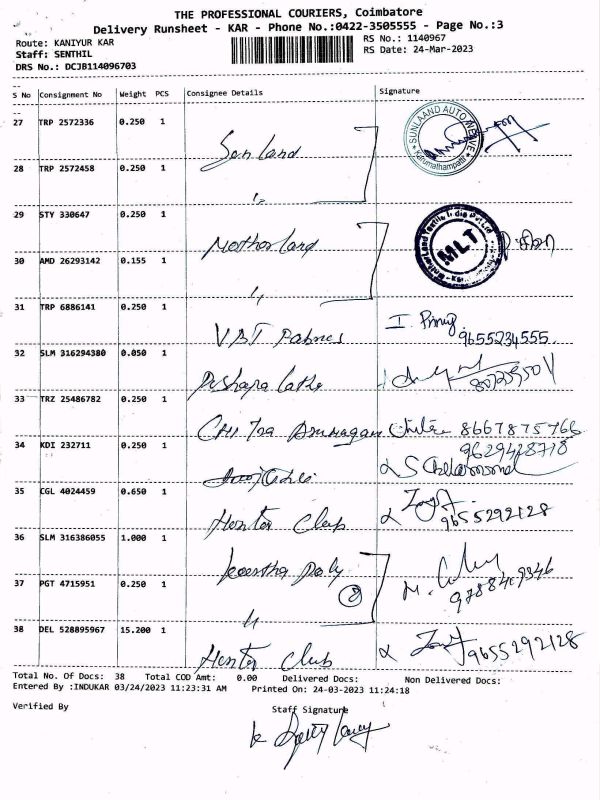 THE PROFESSIONAL COURIERS, Coimbatore
Delivery Runsheet - KAR - Phone No.:0422-3505555 - Page No.:3
Route: KANIYUR KAR
RS No.: 1140967
Staff: SENTHIL
RS Date: 24-Mar-2023
DRS No.: DCJB114096703
S No Consignment No Weight PCS Consignee Details Signature
27 TRP 2572336 0.250 1
Sunland
28 TRP 2572458 0.250 1
"
29 STY 330647 0.250 1
Motherland
30 AMD 26293142 0.155 1
"
31 TRP 6886141 0.250 1
VBT Fabrics 9655234555
32 SLM 316294380 0.050 1
33 TRZ 25486782 0.250 1
8667875766
34 KDI 232711 0.250 1
9629428718
35 CGL 4024459 0.650 1
Hentor Club 9655292128
36 SLM 316386055 1.000 1
Poly
37 PGT 4715951 0.250 1
"
38 DEL 528895967 15.200 1
Hentor Club 9655292128
Total No. Of Docs: 38 Total COD Amt: 0.00 Delivered Docs: Non Delivered Docs:
Entered By :INDUKAR 03/24/2023 11:23:31 AM Printed On: 24-03-2023 11:24:18
Verified By Staff Signature
SUNLAAND AUTO
MLT